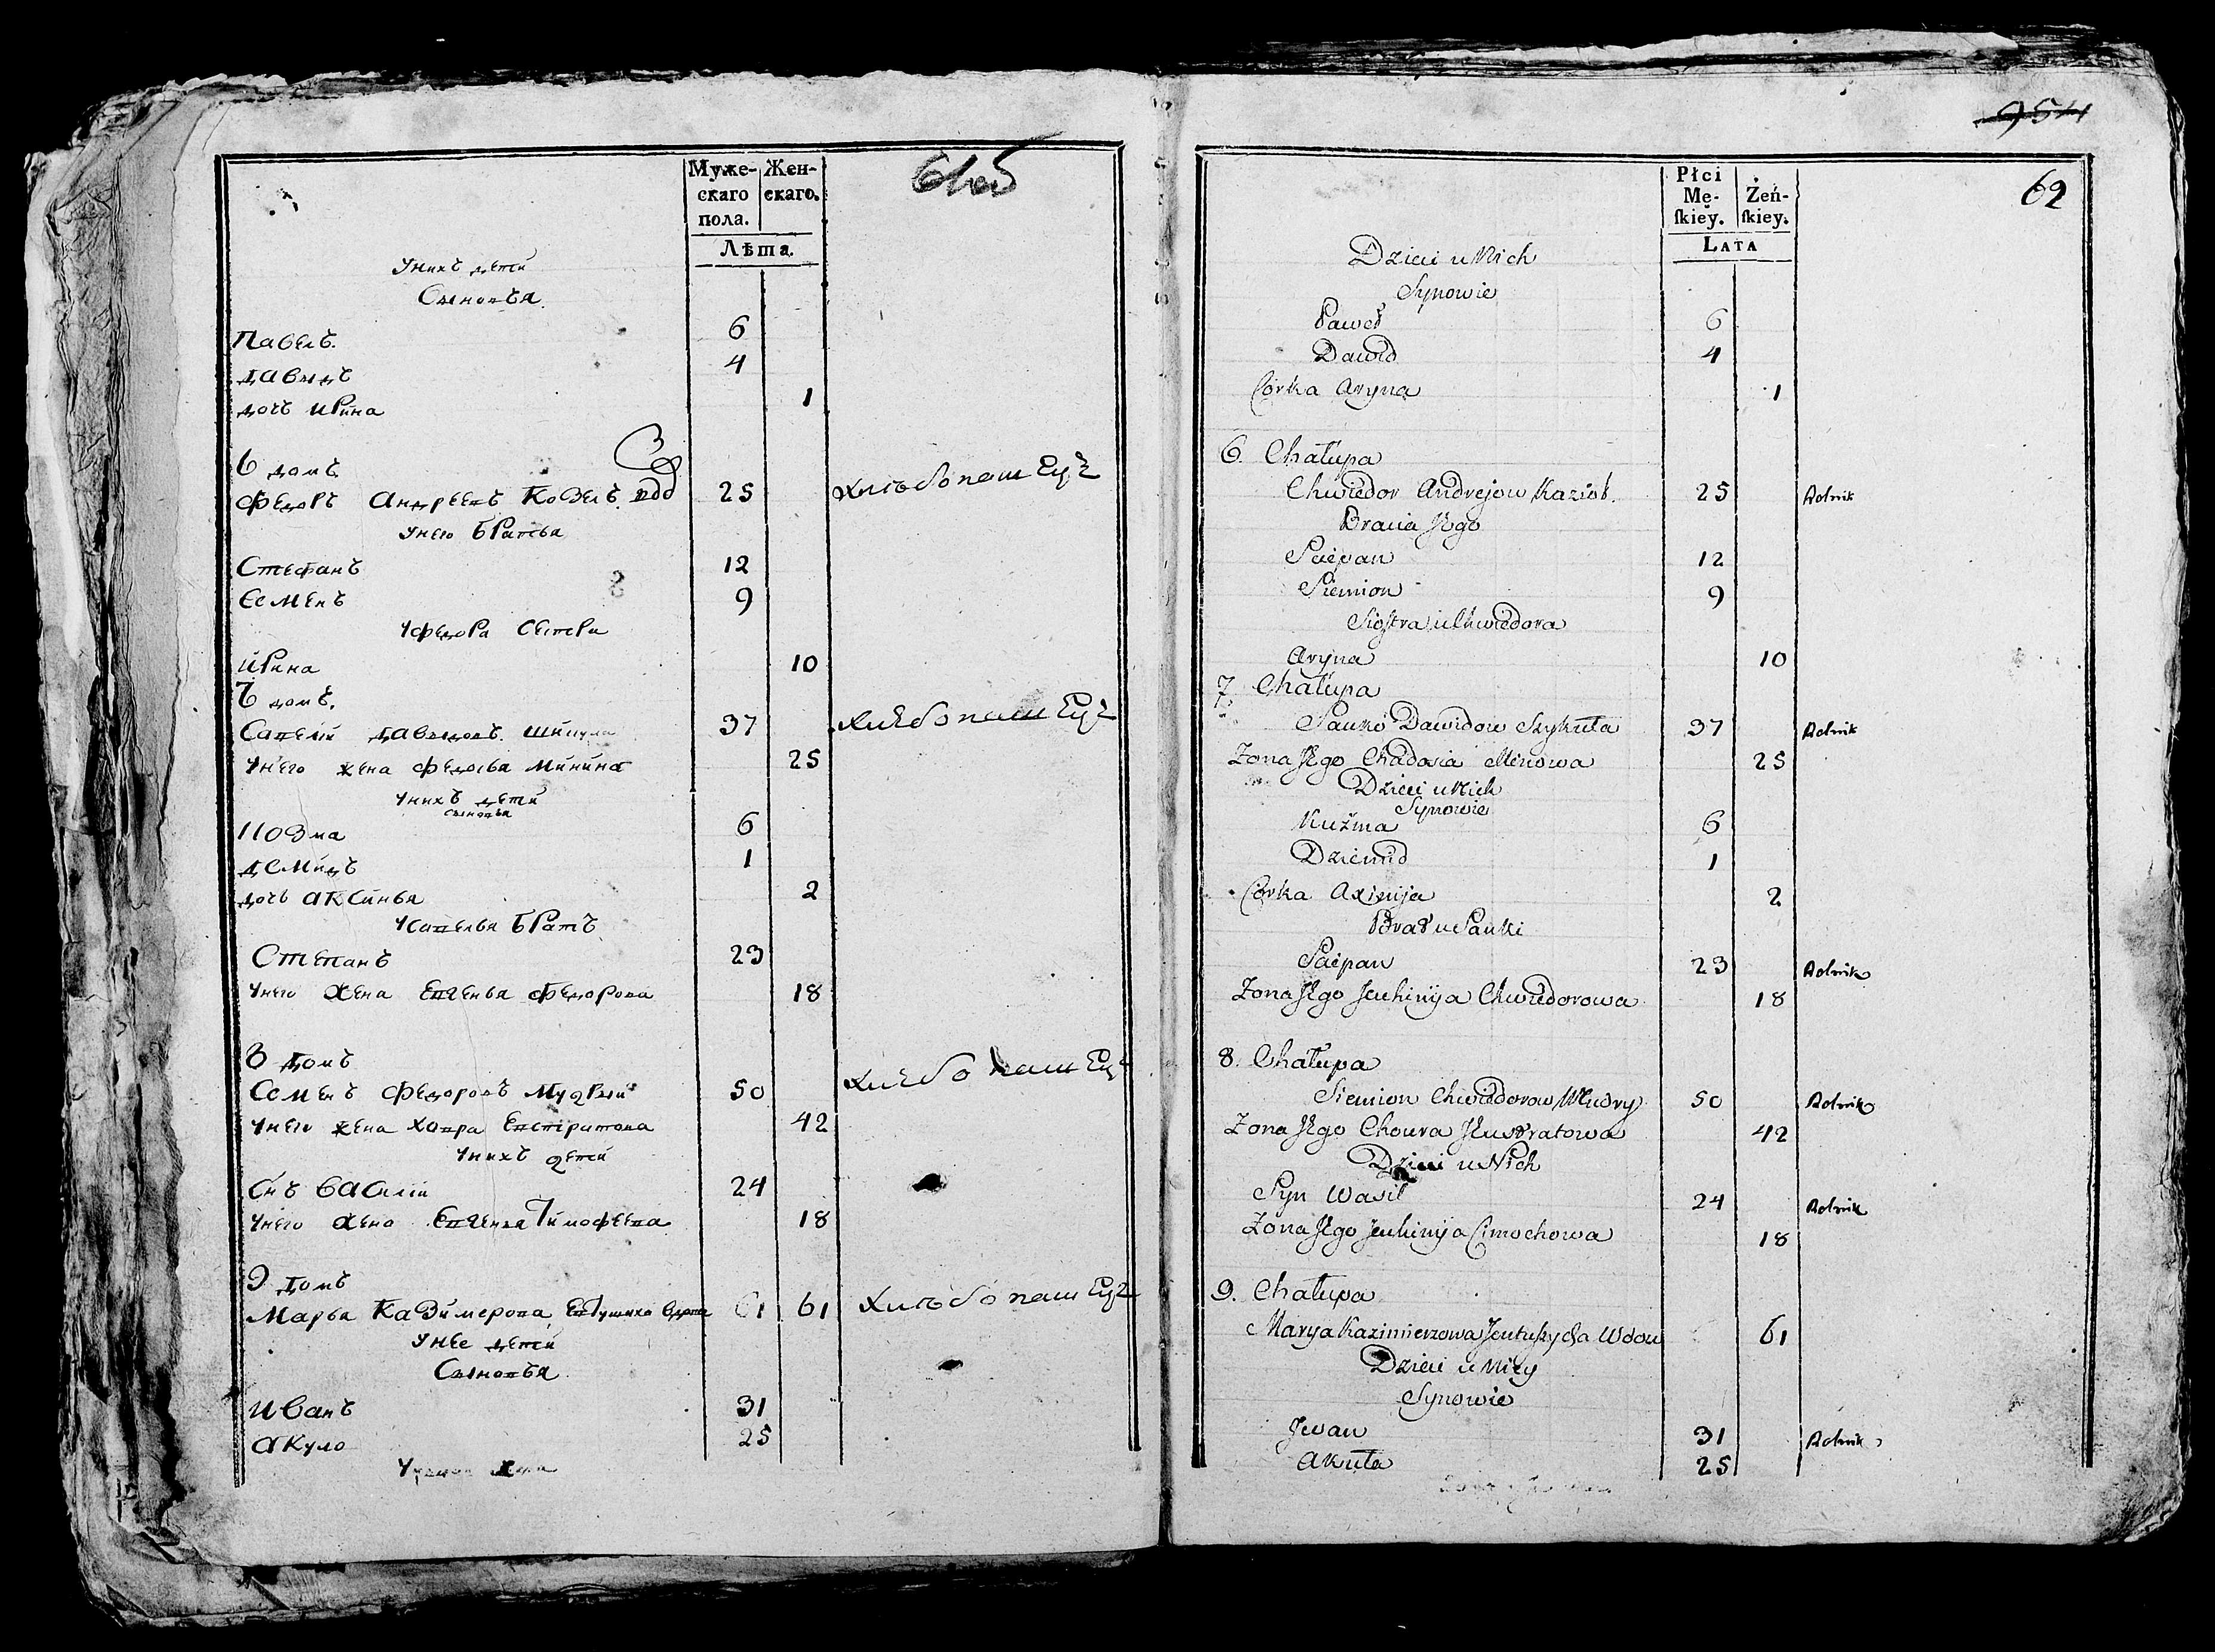 Муже-
скаго
пола.
Жен-
скаго.
Лѣта.
61 об
Унихъ дети
Сыновья
Павелъ. 6
Давыдъ 4
дочь Ирина 1
6 домъ
Федоръ Андреевъ Козелъ. 25 хлѣбопашецъ
Унего Братья
Стефанъ 12
Семенъ 9
Уфедора Сестра
Ирина 10
7 домъ.
Савелий Давыдовъ 37 хлебопашецъ
Унего жена Федосья Минина 25
Унихъ дети
сыновья
Козма 6
Демидъ 1
дочь Аксинья 2
Усавелья Братъ
Степанъ 23
Унего жена Евгенья Федорова 18
8 домъ
Семенъ Федоровъ Мудрый 50 хлебопашецъ
Унего жена Хавра Евстратова 42
Унихъ дети
Снъ Василий 24
Унего жена Евгенья Тимофеева 18
9 домъ
Марья Казимерова 61 хлѣбопашецъ
Унее дети
Сыновья
Иванъ 31
Акуло 25
954
62
Płci
Mę-
skiey.
Żeń-
skiey.
LATA
Dzieci u Nich
Synowie
Paweł 6
Dawid 4
Córka Aryna 1
6. Chałupa
Chwiedor Andrejow Kazioł. 25 Rolnik
Bracia Jego
Sciepan 12
Siemion 9
Siostra u Chwiedora
Aryna 10
7. Chałupa
Sauko Dawidow Szykuła 37 Rolnik
Zona Jego Chadosia Minowa 25
Dzieci u Nich
Synowie
Kuźma 6
Dziemid 1
Córka Axinija 2
Brat u Sauki
Sciepan 23 Rolnik
Zona Jego Jeuhinija Chwiedorowa 18
8. Chałupa
Siemion Chwiedorow Mudry 50 Rolnik
Zona Jego Choura Jeustratowa 42
Dzieci u Nich
Syn Wasil 24 Rolnik
Zona Jego Jeuhinija Cimochowa 18
9. Chałupa
Marya Kazimierzowa Jeutuszycha Wdowa 61
Dzieci u Niey
Synowie
Jwan 31 Rolnik
Akuła 25